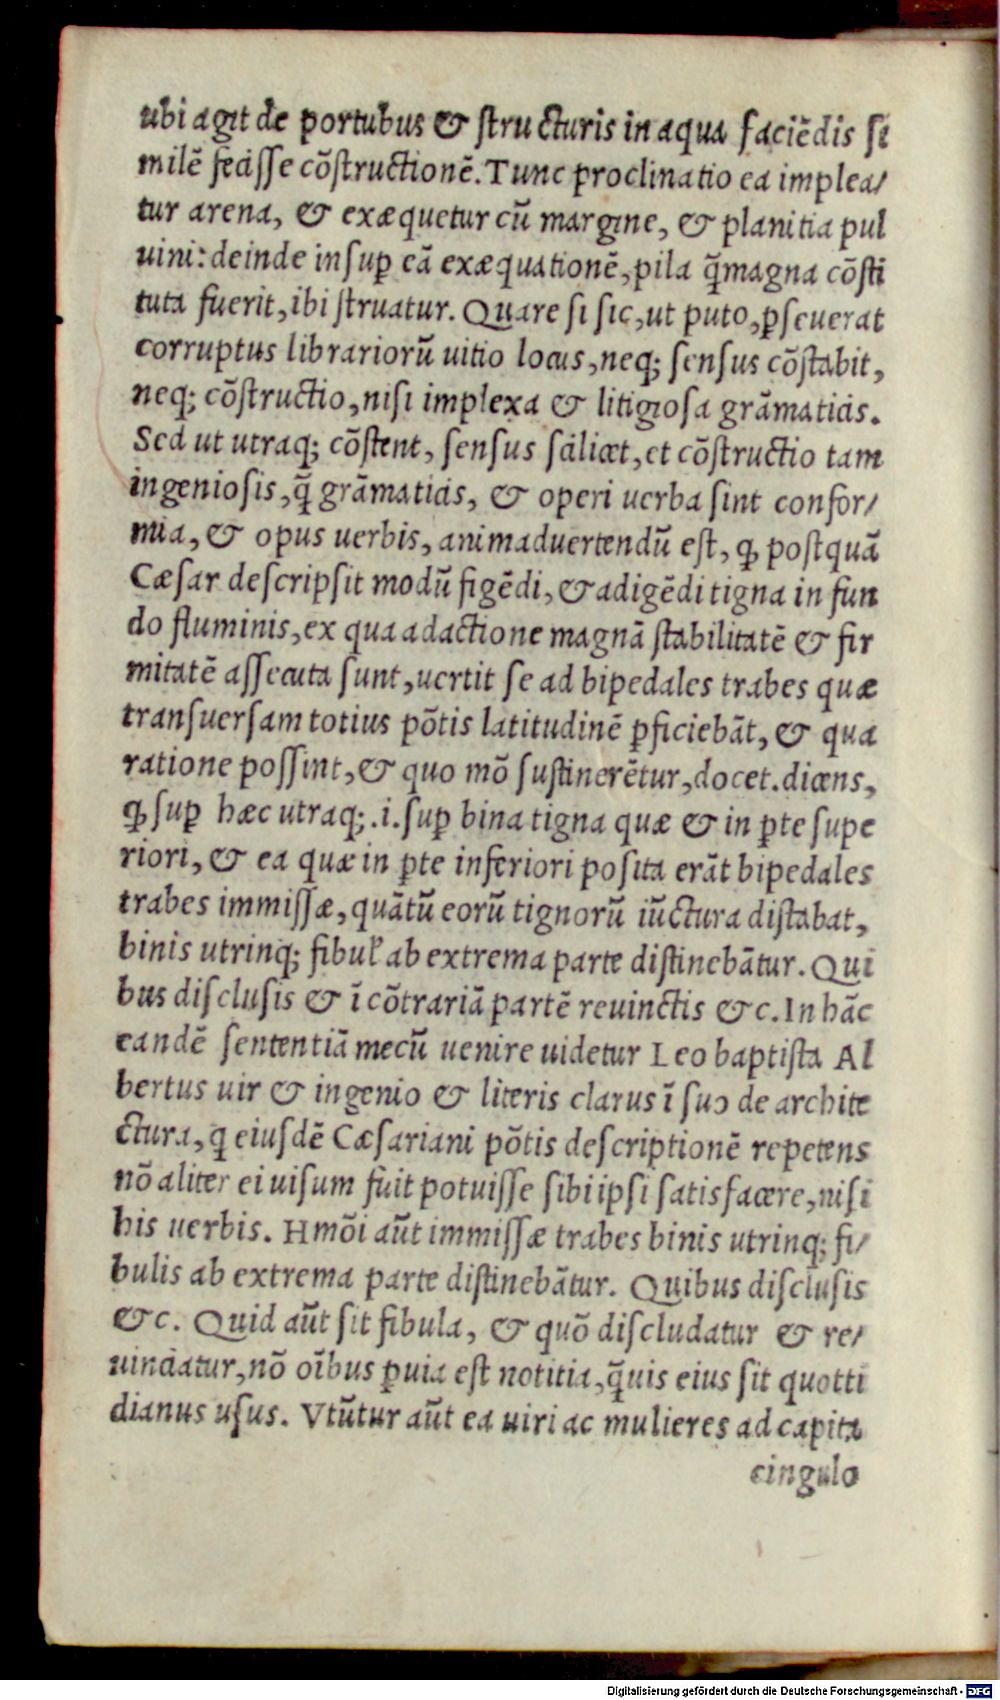 ubi agit de portubus & structuris in aqua faciēdis si
milē fecisse cōstructionē. Tunc proclinatio ea implea/
tur arena, & exæquetur cū margine, & planitia pul
uini: deinde insuꝑ eā exæquationē, pila q̄magna cōsti
tuta fuerit, ibi struatur. Quare si sic, ut puto, ꝑseuerat
corruptus librariorū uitio locus, neq; sensus cōstabit,
neq; cōstructio, nisi implexa & litigiosa grāmaticis.
Sed ut utraq; cōstent, sensus scilicet, et cōstructio tam
ingeniosis, q̄ grāmaticis, & operi uerba sint confor/
mia, & opus uerbis, animaduertendū est, ꝙ postquā
Cæsar descripsit modū figēdi, & adigēdi tigna in fun
do fluminis, ex qua adactione magnā stabilitatē & fir
mitatē assecuta sunt, uertit se ad bipedales trabes quæ
transuersam totius pōtis latitudinē ꝑficiebāt, & qua
ratione possint, & quo mō sustinerētur, docet. dicens,
ꝙ suꝑ hæc utraq; .i. suꝑ bina tigna quæ & in ꝑte supe
riori, & ea quæ in ꝑte inferiori posita erāt bipedales
trabes immissæ, quātū eorū tignorū iūctura distabat,
binis utrinq; fibuł ab extrema parte distinebātur. Qui
bus disclusis & ī cōtrariā partē reuinctis &c. In hāc
eandē sententiā mecū uenire uidetur Leo baptista Al
bertus uir & ingenio & literis clarus ī suo de archite
ctura, q eiusdē Cæsariani pōtis descriptionē repetens
nō aliter ei uisum fuit potuisse sibiipsi satisfacere, nisi
his uerbis. Hmōi aūt immissæ trabes binis utrinq; fi/
bulis ab extrema parte distinebātur. Quibus disclusis
&c. Quid aūt sit fibula, & quō discludatur & re/
uinciatur, nō oībus ꝑuia est notitia, q̄uis eius sit quotti
dianus usus. Vtūtur aūt ea uiri ac mulieres ad capita
cingulo
Digitalisierung gefördert durch die Deutsche Forschungsgemeinschaft - DFG